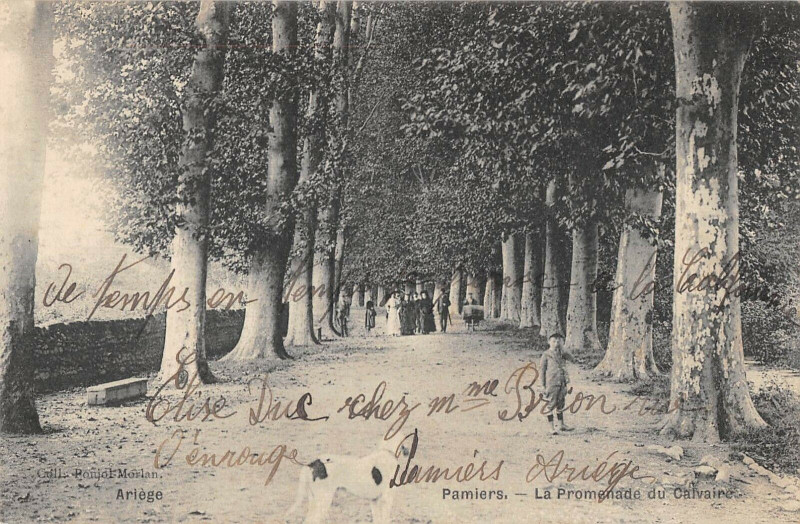 de temps en temps de la
Élise Duc chez mme Brion rue
Pénrouge Pamiers Ariège
Coll. Ponjol-Morlan.
Ariège
Pamiers. — La Promenade du Calvaire.